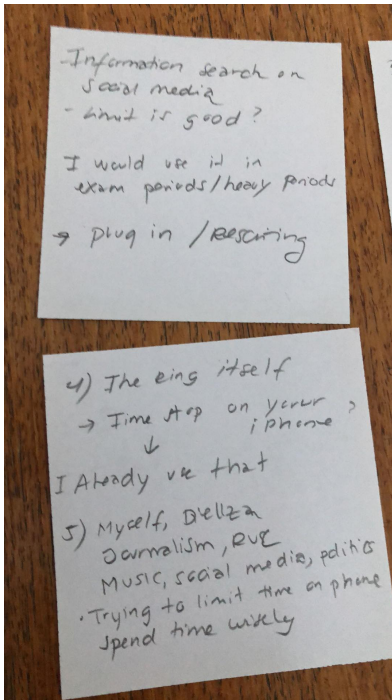 -Information search on
social media
- Limit is good?
I would use it in
exam periods/heavy periods
→ plug in /
4) The ring itself
→ Time stop on your ?
iphone
↓
I Already use that
5) Myself,
Journalism, RUC
Music, social media, politics
• Trying to limit time on phone
spend time wisely